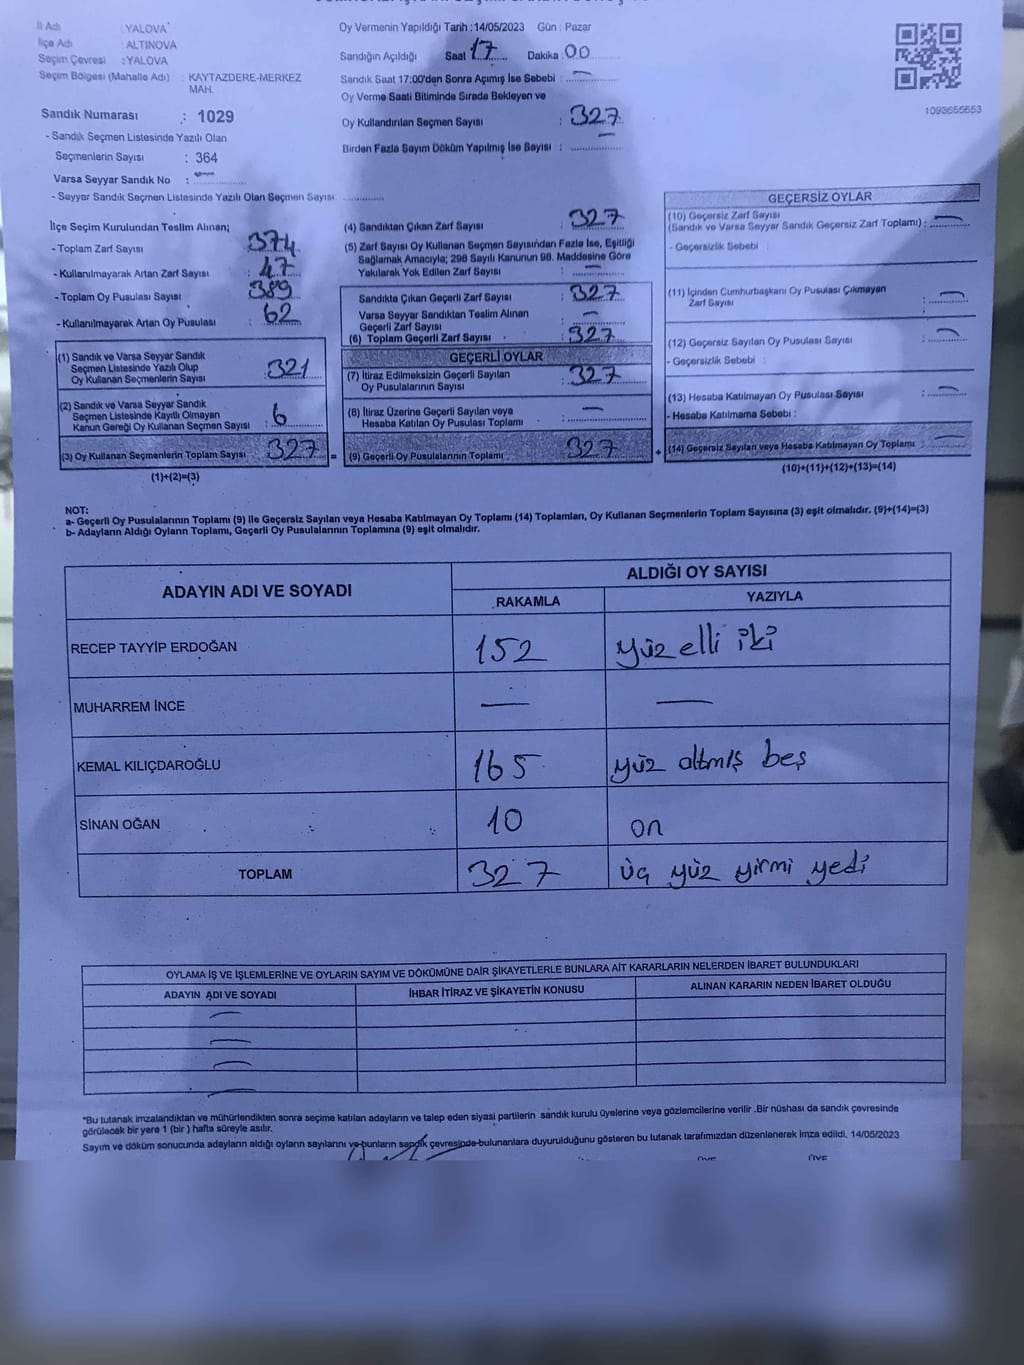 İl Adı : YALOVA
İlçe Adı : ALTINOVA
Seçim Çevresi : YALOVA
Seçim Bölgesi (Mahalle Adı) : KAYTAZDERE-MERKEZ MAH.
Sandık Numarası : 1029
- Sandık Seçmen Listesinde Yazılı Olan
Seçmenlerin Sayısı : 364
Varsa Seyyar Sandık No : —
- Seyyar Sandık Seçmen Listesinde Yazılı Olan Seçmen Sayısı :
Oy Vermenin Yapıldığı Tarih : 14/05/2023 Gün : Pazar
Sandığın Açıldığı Saat 17 Dakika 00
Sandık Saat 17:00'den Sonra Açımış İse Sebebi : —
Oy Verme Saati Bitiminde Sırada Bekleyen ve
Oy Kullandırılan Seçmen Sayısı : 327
Birden Fazla Sayım Döküm Yapılmış İse Sayısı : —
1093655653
İlçe Seçim Kurulundan Teslim Alınan;
- Toplam Zarf Sayısı : 374
- Kullanılmayarak Artan Zarf Sayısı : 47
- Toplam Oy Pusulası Sayısı : 389
- Kullanılmayarak Artan Oy Pusulası : 62
(1) Sandık ve Varsa Seyyar Sandık
Seçmen Listesinde Yazılı Olup
Oy Kullanan Seçmenlerin Sayısı : 321
(2) Sandık ve Varsa Seyyar Sandık
Seçmen Listesinde Kayıtlı Olmayan
Kanun Gereği Oy Kullanan Seçmen Sayısı : 6
(3) Oy Kullanan Seçmenlerin Toplam Sayısı : 327 =
(1)+(2)=(3)
(4) Sandıktan Çıkan Zarf Sayısı : 327
(5) Zarf Sayısı Oy Kullanan Seçmen Sayısından Fazla İse, Eşitliği
Sağlamak Amacıyla; 298 Sayılı Kanunun 98. Maddesine Göre
Yakılarak Yok Edilen Zarf Sayısı : —
Sandıkta Çıkan Geçerli Zarf Sayısı : 327
Varsa Seyyar Sandıktan Teslim Alınan
Geçerli Zarf Sayısı : —
(6) Toplam Geçerli Zarf Sayısı : 327
GEÇERLİ OYLAR
(7) İtiraz Edilmeksizin Geçerli Sayılan
Oy Pusulalarının Sayısı : 327
(8) İtiraz Üzerine Geçerli Sayılan veya
Hesaba Katılan Oy Pusulası Toplamı : —
(9) Geçerli Oy Pusulalarının Toplamı : 327 +
GEÇERSİZ OYLAR
(10) Geçersiz Zarf Sayısı
(Sandık ve Varsa Seyyar Sandık Geçersiz Zarf Toplamı) : —
- Geçersizlik Sebebi :
(11) İçinden Cumhurbaşkanı Oy Pusulası Çıkmayan
Zarf Sayısı : —
(12) Geçersiz Sayılan Oy Pusulası Sayısı : —
- Geçersizlik Sebebi :
(13) Hesaba Katılmayan Oy Pusulası Sayısı : —
- Hesaba Katılmama Sebebi :
(14) Geçersiz Sayılan veya Hesaba Katılmayan Oy Toplamı : —
(10)+(11)+(12)+(13)=(14)
NOT:
a- Geçerli Oy Pusulalarının Toplamı (9) ile Geçersiz Sayılan veya Hesaba Katılmayan Oy Toplamı (14) Toplamları, Oy Kullanan Seçmenlerin Toplam Sayısına (3) eşit olmalıdır. (9)+(14)=(3)
b- Adayların Aldığı Oyların Toplamı, Geçerli Oy Pusulalarının Toplamına (9) eşit olmalıdır.
ADAYIN ADI VE SOYADI ALDIĞI OY SAYISI
RAKAMLA YAZIYLA
RECEP TAYYİP ERDOĞAN 152 yüz elli iki
MUHARREM İNCE — —
KEMAL KILIÇDAROĞLU 165 yüz altmış beş
SİNAN OĞAN 10 on
TOPLAM 327 üç yüz yirmi yedi
OYLAMA İŞ VE İŞLEMLERİNE VE OYLARIN SAYIM VE DÖKÜMÜNE DAİR ŞİKAYETLERLE BUNLARA AİT KARARLARIN NELERDEN İBARET BULUNDUKLARI
ADAYIN ADI VE SOYADI İHBAR İTİRAZ VE ŞİKAYETİN KONUSU ALINAN KARARIN NEDEN İBARET OLDUĞU
—
—
—
—
*Bu tutanak imzalandıktan ve mühürlendikten sonra seçime katılan adayların ve talep eden siyasi partilerin sandık kurulu üyelerine veya gözlemcilerine verilir .Bir nüshası da sandık çevresinde
görülecek bir yere 1 (bir ) hafta süreyle asılır.
Sayım ve döküm sonucunda adayların aldığı oyların sayılarını ve bunların sandık çevresinde bulunanlara duyurulduğunu gösteren bu tutanak tarafımızdan düzenlenerek imza edildi. 14/05/2023
ÜYE ÜYE